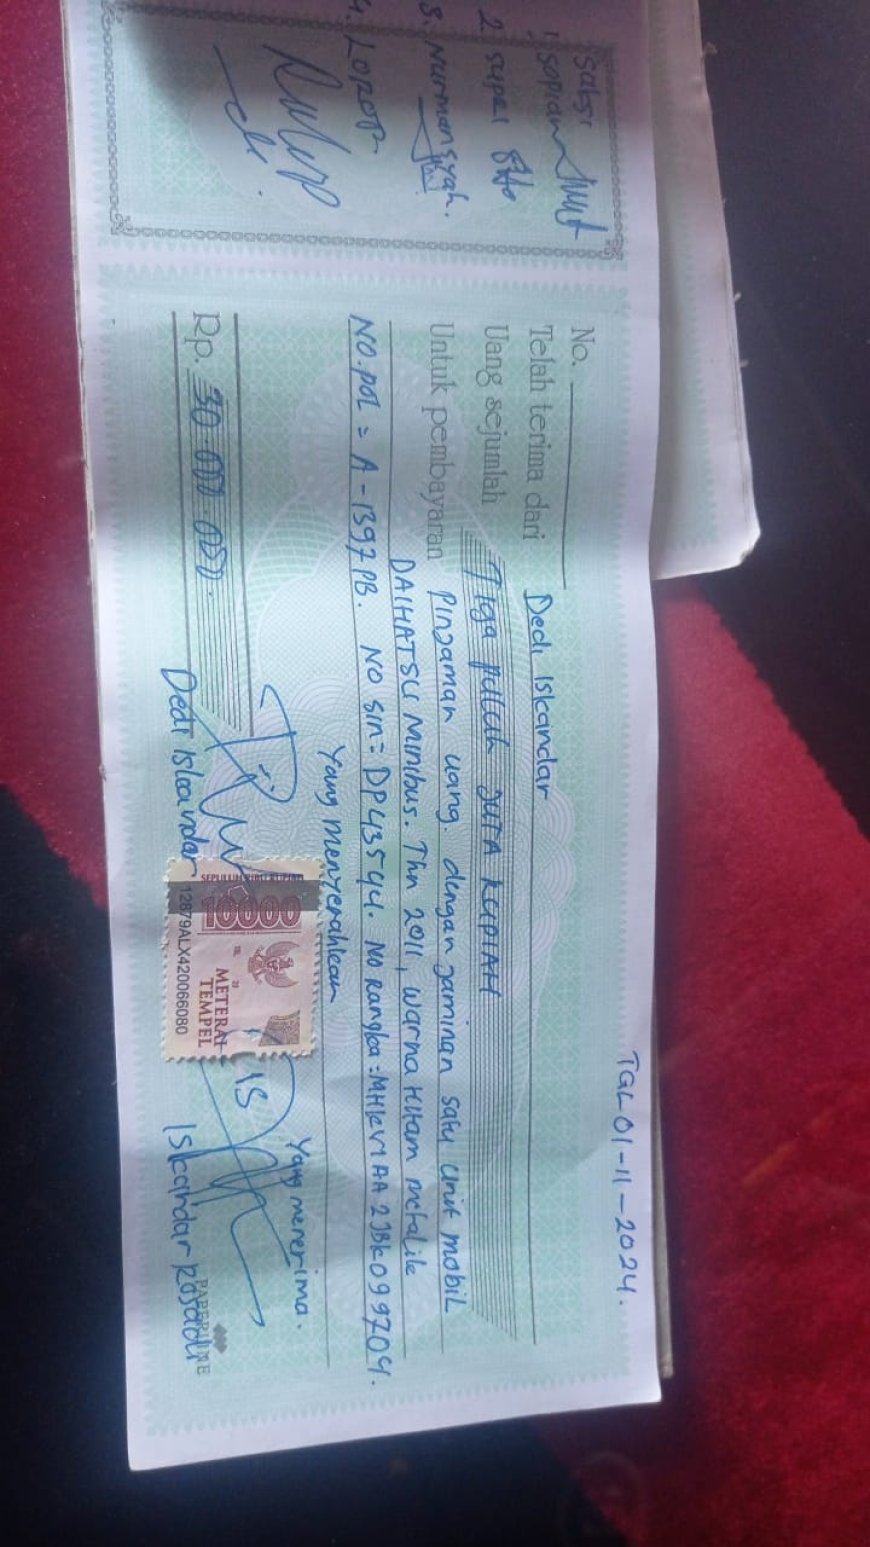 Saksi
1. Sopian
2 Supri
3. Nurmansyah.
4.
TGL 01-11-2024.
No.
Telah terima dari Dedi Iskandar
Uang sejumlah Tiga puluh JUTA RUPIAH
Untuk pembayaran Pinjaman uang. dengan jaminan satu unit mobil
DAIHATSU Minibus. Thn 2011, warna Hitam metalik
NO.POL = A-1397PB. NO SIN = DP43544. No Rangka = MHKV1AA2JBK099704.
Yang menyerahkan
Yang menerima.
Rp. 30.000.000.
SEPULUH RIBU RUPIAH
10000
METERAI
TEMPEL
12879ALX420066080
Dedi Iskandar
Iskandar Rosadi
PAPERLINE